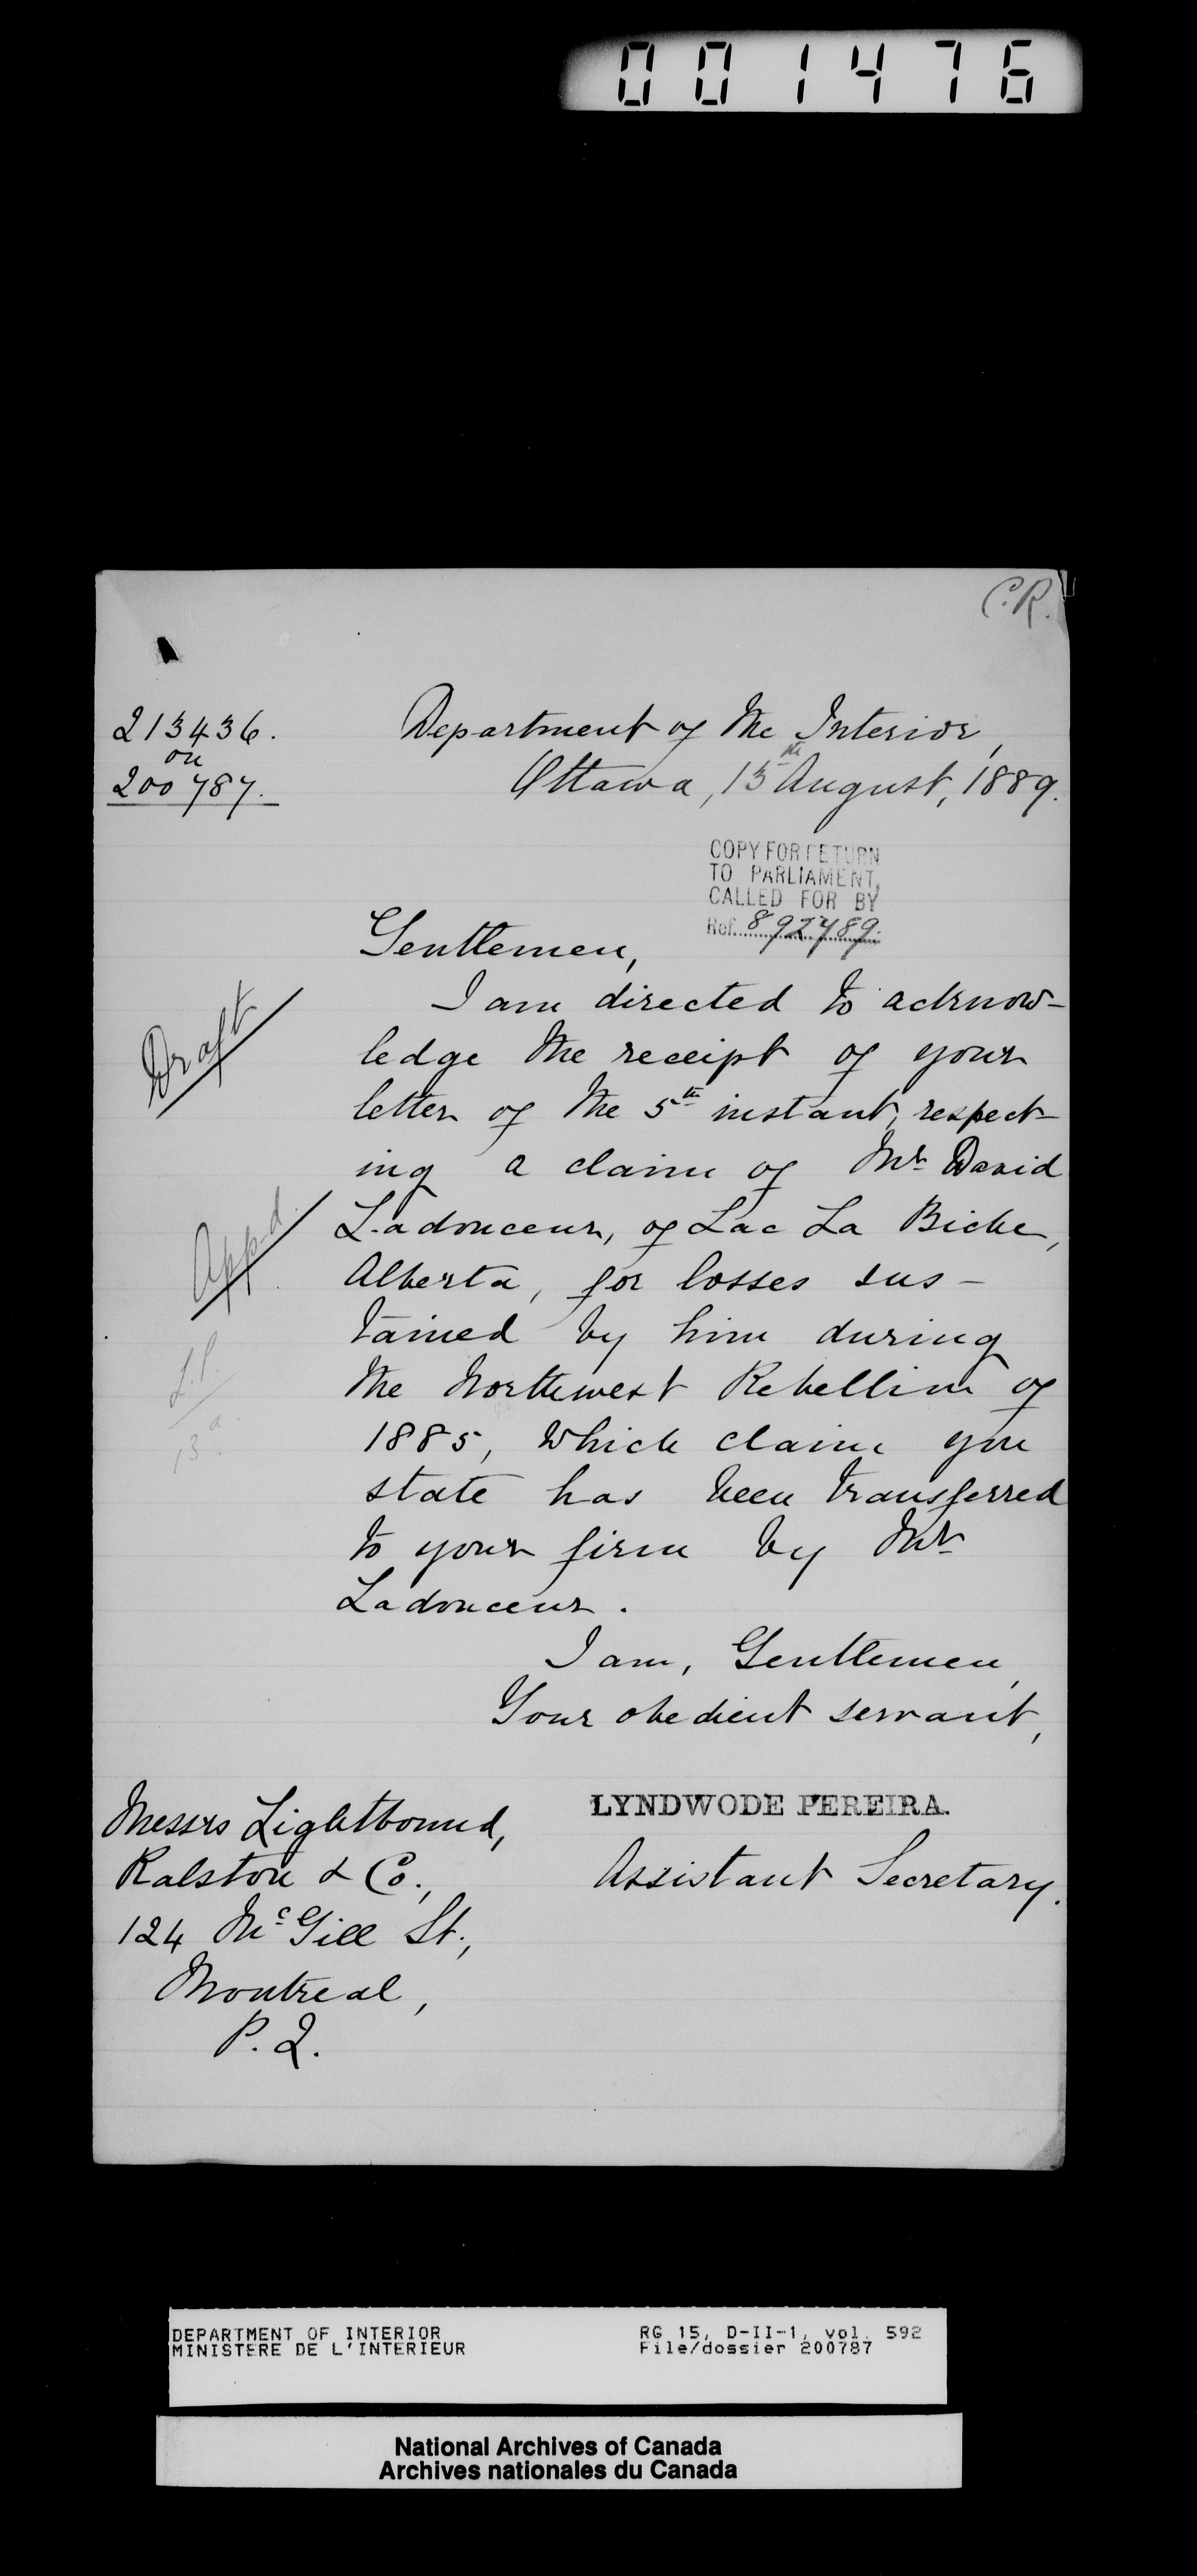 001476
C.R.
213436.
on
200787.
Department of the Interior,
Ottawa, 13th August, 1889.
COPY FOR RETURN
TO PARLIAMENT,
CALLED FOR BY
Ref. 892789.
Gentlemen,
I am directed to acknow-
ledge the receipt of your
letter of the 5th instant, respect-
ing a claim of Mr David
Ladouceur, of Lac La Biche,
Alberta, for losses sus-
tained by him during
the Northwest Rebellion of
1885, which claim you
state has been transferred
to your firm by Mr
Ladouceur.
Draft
Appd.
L.P.
13
I am, Gentlemen,
Your obedient servant,
LYNDWODE PEREIRA.
Assistant Secretary.
Messrs Lightbound,
Ralston & Co.,
124 McGill St.,
Montreal,
P. Q.
DEPARTMENT OF INTERIOR
MINISTERE DE L'INTERIEUR
RG 15, D-II-1, vol. 592
File/dossier 200787
National Archives of Canada
Archives nationales du Canada